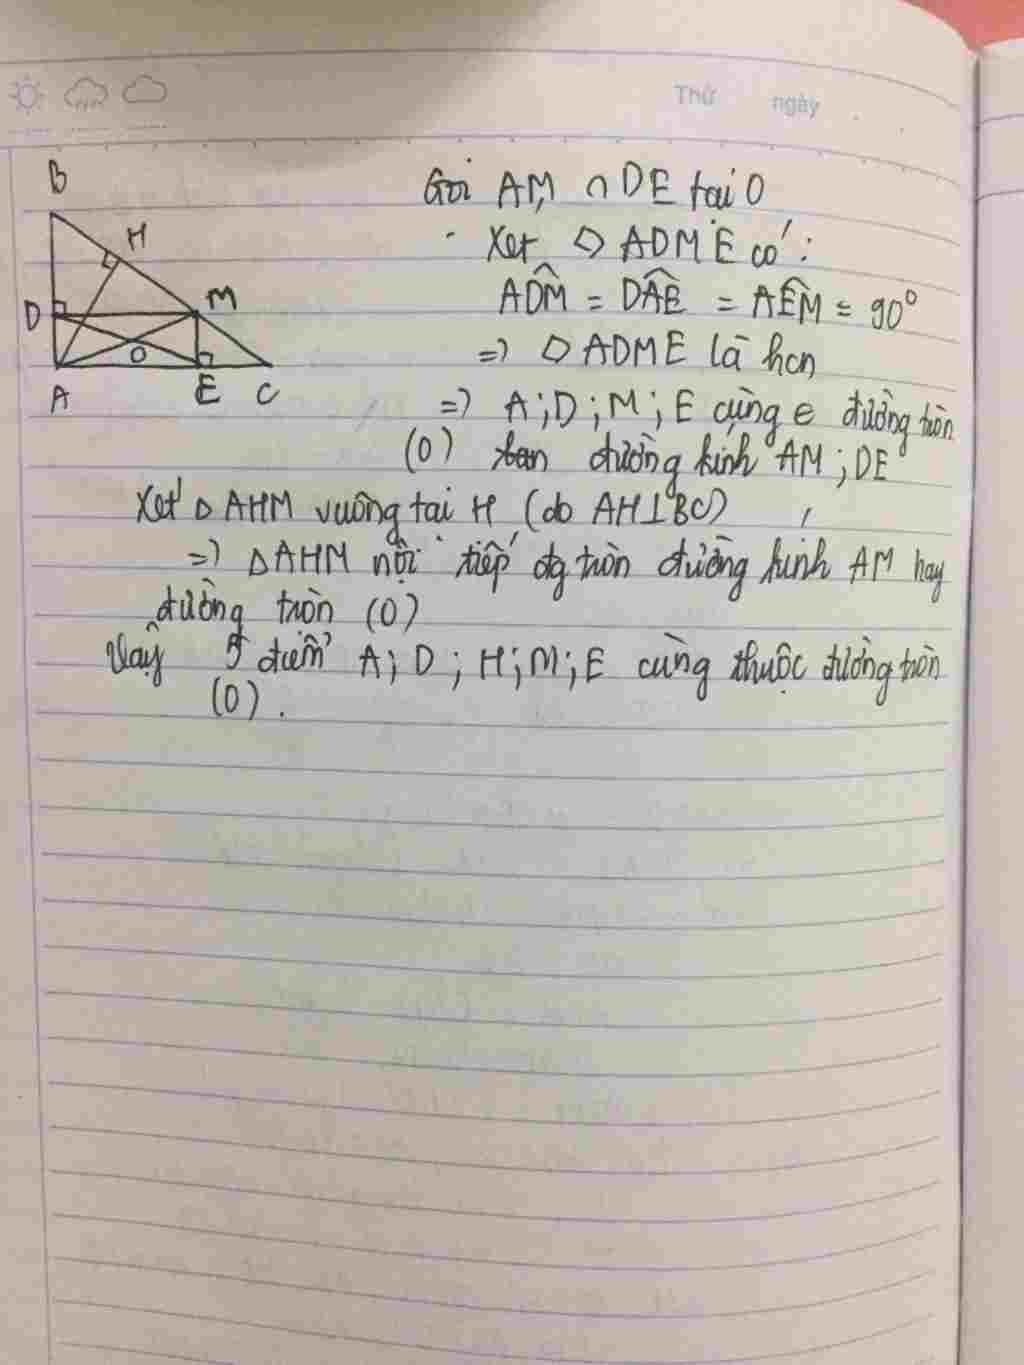 Thứ ngày
B
H
D
M
O
A
E
C
Gọi AM ∩ DE tại O
Xét ◇ ADME có:
ADM̂ = DAÊ = AEM̂ = 90°
=> ◇ ADME là hcn
=> A; D; M; E cùng e đường tròn
(O) đường kính AM; DE
Xét Δ AHM vuông tại H (do AH⊥BC)
=> ΔAHM nội tiếp đg tròn đường kính AM hay
đường tròn (O)
Vậy 5 điểm A; D; H; M; E cùng thuộc đường tròn
(O).